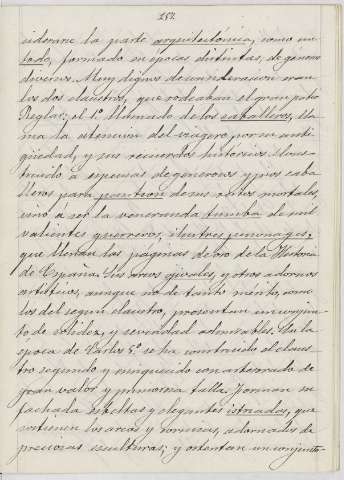 157.
siderarse la parte arquitectónica, como un
todo, formado en epocas distintas, de generos
diversos. Muy dignos de consideracion eran
los dos claustros, que rodeaban el gran patio
Reglar: el 1º llamado de los caballeros, lla-
ma la atencion del viagero por su anti-
güedad, y sus recuerdos históricos. Cons-
truido a espensas de generosos y pios caba-
lleros para panteon de sus restos mortales,
vino a ser la veneranda tumba de mil
valientes guerreros, ilustres personages,
que llenan las paginas de oro de la Historia
de España. Sus arcos ojivales, y otros adornos
artísticos, aunque no de tanto mérito, como
los del segun. claustro, presentan un conjun-
to de solidez, y severidad admirables. En la
epoca de Carlos 5º se ha construido el claus-
tro segundo y enriquecido con artesonado de
gran valor y primorosa talla. Forman su
fachada esbeltas y elegantes istriadas, que
sostienen los arcos y cornisas, adornados de
preciosas esculturas; y ostentan un conjunto